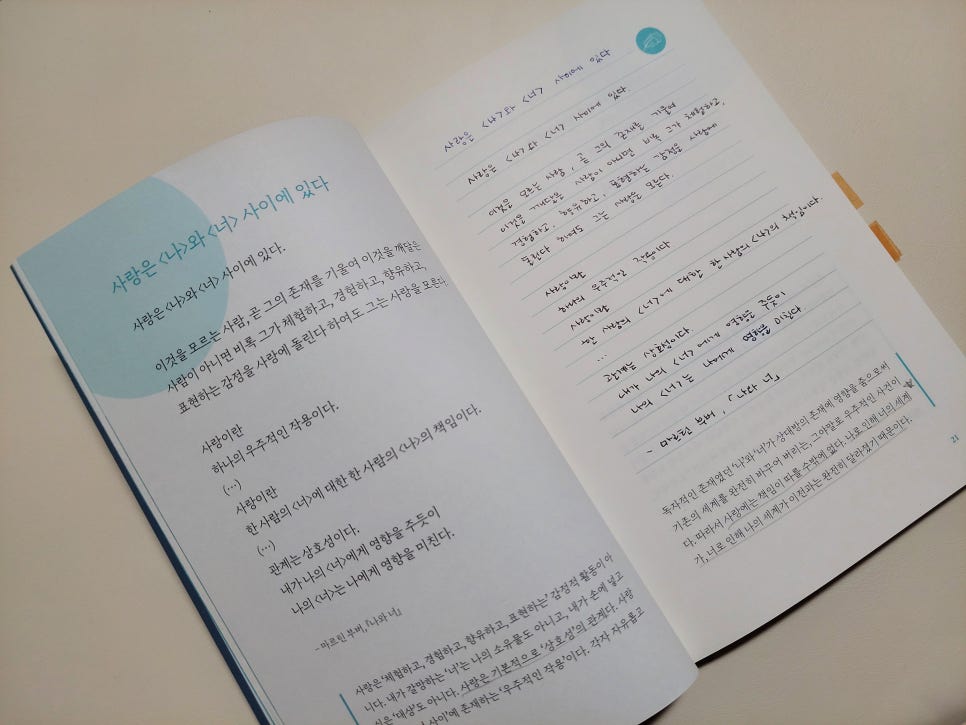 사랑은 <나>와 <너> 사이에 있다
사랑은 <나>와 <너> 사이에 있다.
이것을 모르는 사람, 곧 그의 존재를 기울여 이것을 깨달은
사람이 아니면 비록 그가 체험하고, 경험하고, 향유하고,
표현하는 감정을 사랑에 돌린다 하여도 그는 사랑을 모른다.
사랑이란
하나의 우주적인 작용이다.
(…)
사랑이란
한 사람의 <너>에 대한 한 사람의 <나>의 책임이다.
(…)
관계는 상호성이다.
내가 나의 <너>에게 영향을 주듯이
나의 <너>는 나에게 영향을 미친다.
- 마르틴 부버, 『나와 너』
사랑은 '체험하고, 경험하고, 향유하고, 표현하는' 감정적 활동이 아
니다. 내가 갈망하는 '너'는 나의 소유물도 아니고, 내가 손에 넣고
싶은 '대상'도 아니다. 사랑은 기본적으로 '상호성'의 관계다. 사랑
사이'에 존재하는 '우주적인 작용'이다. 각자 자유롭고
사랑은 <나>와 <너> 사이에 있다
사랑은 <나>와 <너> 사이에 있다.
이것을 모르는 사람, 곧 그의 존재를 기울여
이것을 깨달은 사람이 아니면 비록 그가 체험하고,
경험하고, 향유하고, 표현하는 감정을 사랑에
돌린다 하여도 그는 사랑을 모른다.
사랑이란
하나의 우주적인 작용이다.
사랑이란
한 사람의 <너>에 대한 한 사람의 <나>의 책임이다.
…
관계는 상호성이다.
내가 나의 <너>에게 영향을 주듯이
나의 <너>는 나에게 영향을 미친다
- 마르틴 부버, 『나와 너』
독자적인 존재였던 '나'와 '너'가 상대방의 존재에 영향을 줌으로써
기존의 세계를 완전히 바꾸어 버리는, 그야말로 우주적인 사건이
다. 따라서 사랑에는 책임이 따를 수밖에 없다. 나로 인해 너의 세계
가, 너로 인해 나의 세계가 이전과는 완전히 달라졌기 때문이다.
21